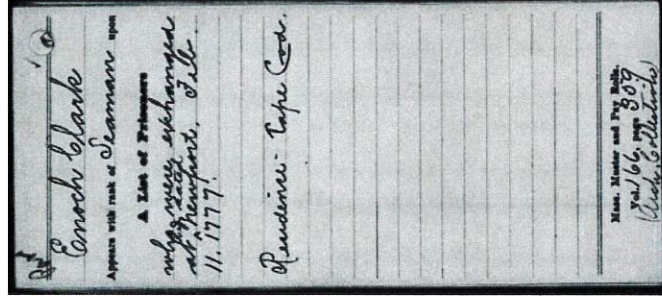 Enoch Clark
Appears with rank of Seaman upon
A List of Prisoners
who were exchanged
dated
at Newport, Feb.
11. 1777.
Residence - Cape Cod.
Mass. Muster and Pay Rolls.
Vol. 166, page 309